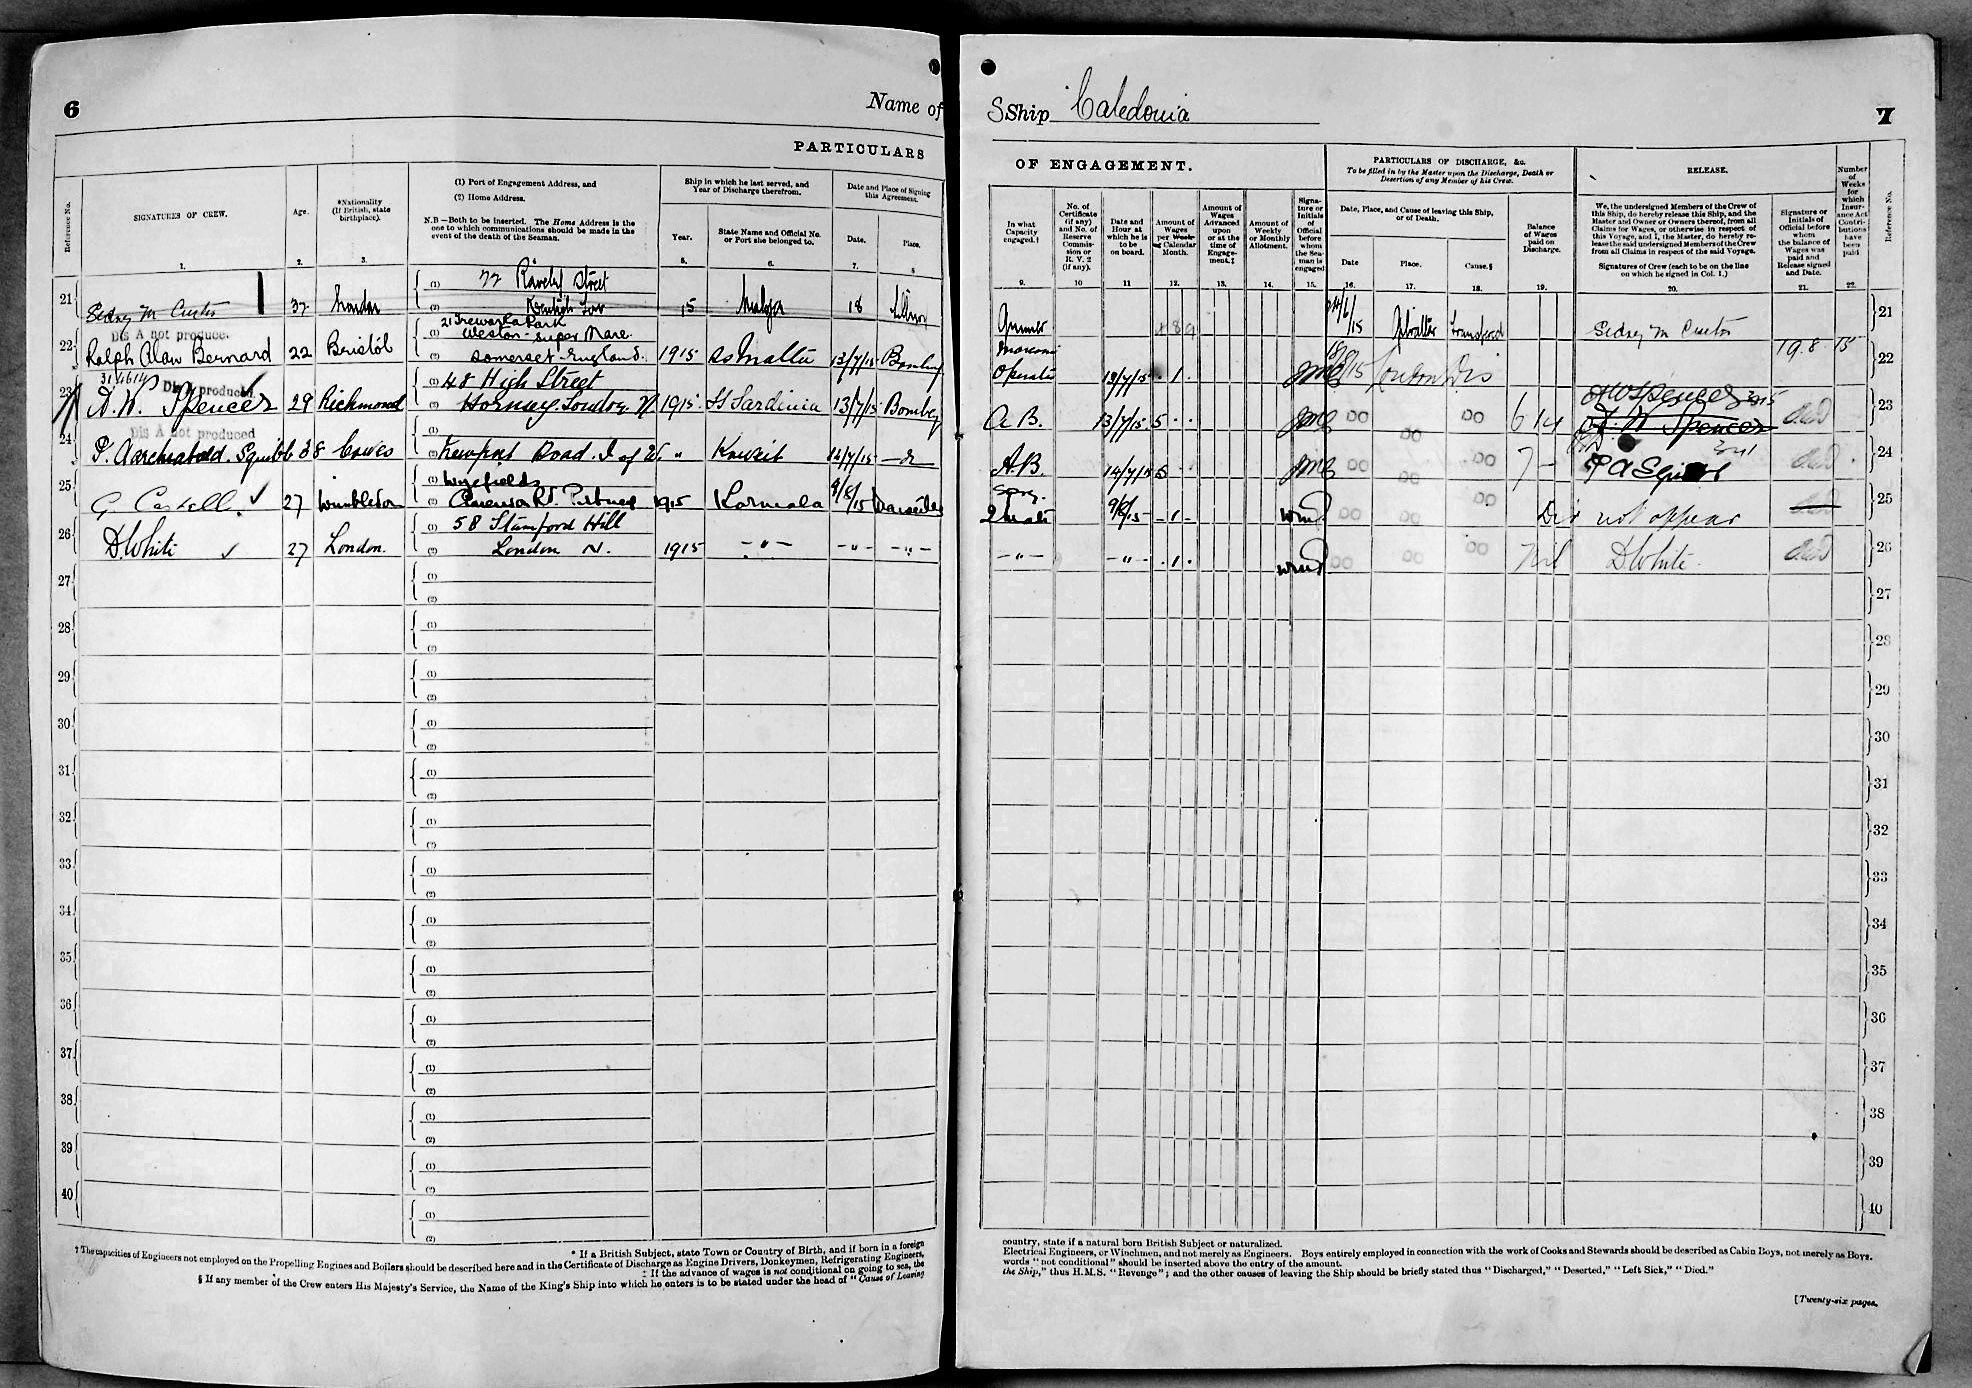 6
Name of
PARTICULARS
Reference No.
SIGNATURES OF CREW.
Age.
*Nationality
(If British, state
birthplace).
(1) Port of Engagement Address, and
(2) Home Address.
N.B—Both to be inserted. The Home Address is the
one to which communications should be made in the
event of the death of the Seaman.
Ship in which he last served, and
Year of Discharge therefrom.
Year.
State Name and Official No.
or Port she belonged to.
Date and Place of Signing
this Agreement.
Date.
Place.
1. 2. 3. 5. 6. 7. 8
21 Sidney M Curtis 37 London (1) 77 Street
(2) Kentish Town 15 Maloja 18 Tilbury
Dis A not produce.
22 Ralph Alan Bernard 22 Bristol (1) 21 Trewartha Park
Weston-super Mare
(2) Somerset-England. 1915 SS Malta 13/7/15 Bombay
Dis A produced
23 A. W. Spencer 29 Richmond (1) 48 High Street
(2) Hornsey. London. N. 1915 SS Sardinia 13/7/15 Bombay
Dis A not produced
24 P. Archiebald. Squibb 38 Cowes (1)
(2) Newport Road. I of W. " Kuwait 14/7/15 — do —
25 G 27 Wimbledon (1) Wyefields
(2) Rd. Putney 1915 Karmala 9/8/15 Marseilles
26 D. White 27 London. (1) 58 Stamford Hill
(2) London N. 1915 — " — — " — — " —
27 (1)
(2)
28 (1)
(2)
29 (1)
(2)
30 (1)
(2)
31 (1)
(2)
32 (1)
(2)
33 (1)
(2)
34 (1)
(2)
35 (1)
(2)
36 (1)
(2)
37 (1)
(2)
38 (1)
(2)
39 (1)
(2)
40 (1)
(2)
* If a British Subject, state Town or Country of Birth, and if born in a foreign
† The capacities of Engineers not employed on the Propelling Engines and Boilers should be described here and in the Certificate of Discharge as Engine Drivers, Donkeymen, Refrigerating Engineers,
‡ If the advance of wages is not conditional on going to sea, the
§ If any member of the Crew enters His Majesty's Service, the Name of the King's Ship into which he enters is to be stated under the head of "Cause of Leaving
SShip Caledonia
7
OF ENGAGEMENT.
PARTICULARS OF DISCHARGE, &c.
To be filled in by the Master upon the Discharge, Death or
Desertion of any Member of his Crew.
RELEASE.
In what
Capacity
engaged.†
No. of
Certificate
(if any)
and No. of
Reserve
Commis-
sion or
R. V. 2
(if any).
Date and
Hour at
which he is
to be
on board.
Amount of
Wages
per Week
or Calendar
Month.
Amount of
Wages
Advanced
upon
or at the
time of
Engage-
ment.‡
Amount of
Weekly
or Monthly
Allotment.
Signa-
ture or
Initials
of
Official
before
whom
the Sea-
man is
engaged
Date, Place, and Cause of leaving this Ship,
or of Death.
Date
Place.
Cause.§
Balance
of Wages
paid on
Discharge.
We, the undersigned Members of the Crew of
this Ship, do hereby release this Ship, and the
Master and Owner or Owners thereof, from all
Claims for Wages, or otherwise in respect of
this Voyage, and I, the Master, do hereby re-
lease the said undersigned Members of the Crew
from all Claims in respect of the said Voyage.
Signatures of Crew (each to be on the line
on which he signed in Col. 1.)
Signature or
Initials of
Official before
whom
the balance of
Wages was
paid and
Release signed
and Date.
Number
of
Weeks
for
which
Insur-
ance Act
Contri-
butions
have
been
paid
Reference No.
9. 10 11 12. 13. 14. 15. 16. 17. 18. 19. 20. 21. 22.
Gunner 24/6/15 Gibraltar Transferred Sidney M Curtis 21
Marconi
Operator 13/7/15 . 1 . 18/8/15 London Dis 19.8.15 22
A.B. 13/7/15 5 . . 6 14 A W Spencer 23
A.B. 14/7/15 5 7 – P A Squibb 24
2 mate 9/8/15 – 1 – Did not appear 25
— " — — " — . 1 . Nil D. White. 26
27
28
29
30
31
32
33
34
35
36
37
38
39
40
country, state if a natural born British Subject or naturalized.
Electrical Engineers, or Winchmen, and not merely as Engineers. Boys entirely employed in connection with the work of Cooks and Stewards should be described as Cabin Boys, not merely as Boys.
words "not conditional" should be inserted above the entry of the amount.
the Ship," thus H.M.S. "Revenge"; and the other causes of leaving the Ship should be briefly stated thus "Discharged," "Deserted," "Left Sick," "Died."
[Twenty-six pages.